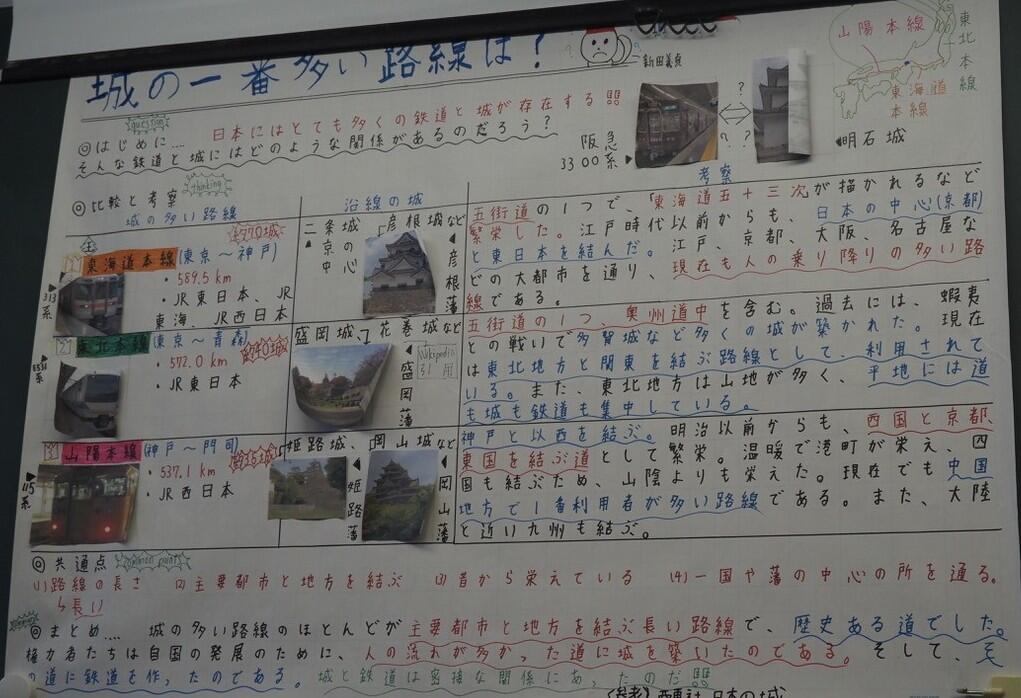 城の一番多い路線は?
山陽本線
東北本線
東海道本線
question
日本にはとても多くの鉄道と城が存在する!!
◎はじめに....
そんな鉄道と城にはどのような関係があるのだろう?
阪急
3300系
?
?
?
?
明石城
thinking
◎比較と考察
城の多い路線
沿線の城
考察
約70城
1
東海道本線(東京~神戸)
・589.5km
・JR東日本、JR
東海、JR西日本
313系
二条城、彦根城など
京の中心
彦根藩
五街道の1つで、「東海道五十三次」が描かれるなど
繁栄した。江戸時代以前からも、日本の中心(京都)
と東日本を結んだ。江戸、京都、大阪、名古屋な
どの大都市を通り、現在も人の乗り降りの多い路
線である。
2
東北本線(東京~青森)
約40城
・572.0km
・JR東日本
盛岡城、花巻城など
盛岡藩
Wikipedia
引用
五街道の1つ、奥州道中を含む。過去には、蝦夷
との戦いで多賀城など多くの城が築かれた。現在
は東北地方と関東を結ぶ路線として、利用されて
いる。また、東北地方は山地が多く、平地には道
も城も鉄道も集中している。
3
山陽本線(神戸~門司)
約35城
・537.1km
・JR西日本
115系
姫路城、岡山城など
姫路藩
岡山藩
神戸と以西を結ぶ。明治以前からも、西国と京都、
東国を結ぶ道として繁栄。温暖で港町が栄え、四
国も結ぶため、山陰よりも栄えた。現在でも中国
地方で1番利用者が多い路線である。また、大陸
と近い九州も結ぶ。
◎共通点
common points
(1)路線の長さ (2)主要都市と地方を結ぶ (3)昔から栄えている (4)一国や藩の中心の所を通る。
↳長い
◎まとめ.... 城の多い路線のほとんどが主要都市と地方を結ぶ長い路線で、歴史ある道でした。
権力者たちは自国の発展のために、人の流れが多かった道に城を築いたのである。そして、そ
の道に鉄道を作ったのである。城と鉄道は密接な関係にあったのだ!!
(参考)西東社 日本の城